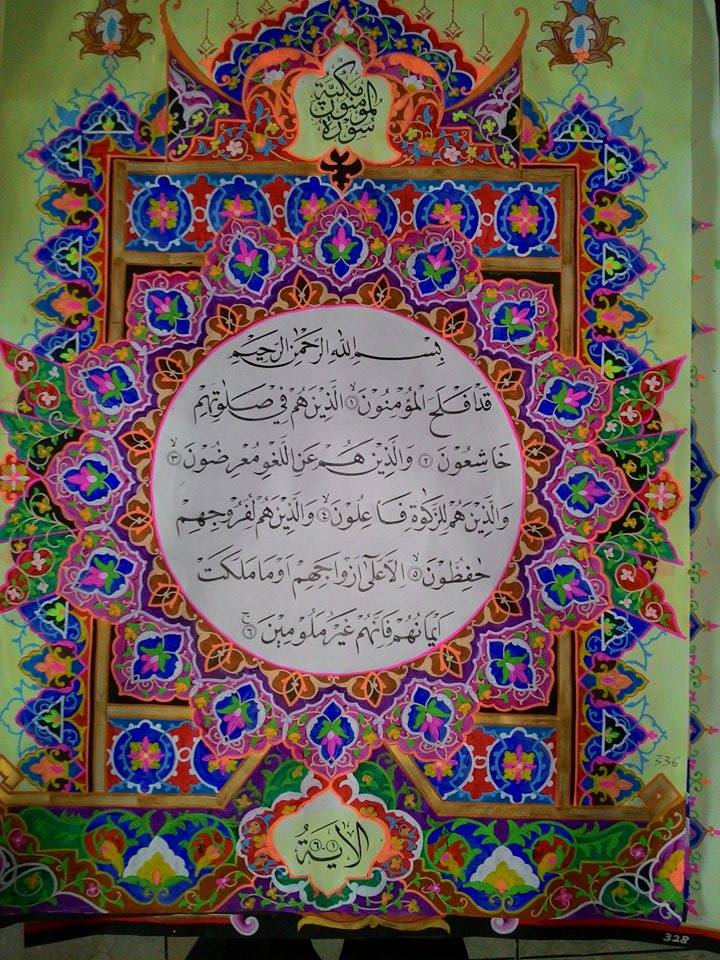 سورة المؤمنون مكية
بِسْمِ اللهِ الرَّحْمٰنِ الرَّحِيْمِ
قَدْ اَفْلَحَ الْمُؤْمِنُوْنَ ۙ﴿١﴾ الَّذِيْنَ هُمْ فِيْ صَلَوٰتِهِمْ
خَاشِعُوْنَ ۙ﴿٢﴾ وَالَّذِيْنَ هُمْ عَنِ اللَّغْوِ مُعْرِضُوْنَ ۙ﴿٣﴾
وَالَّذِيْنَ هُمْ لِلزَّكٰوةِ فَاعِلُوْنَ ۙ﴿٤﴾ وَالَّذِيْنَ هُمْ لِفُرُوْجِهِمْ
حٰفِظُوْنَ ۙ﴿٥﴾ اِلَّا عَلٰٓى اَزْوَاجِهِمْ اَوْ مَا مَلَكَتْ
اَيْمَانُهُمْ فَاِنَّهُمْ غَيْرُ مَلُوْمِيْنَ ۚ﴿٦﴾
336
الْاٰيَةُ ١-٦
328